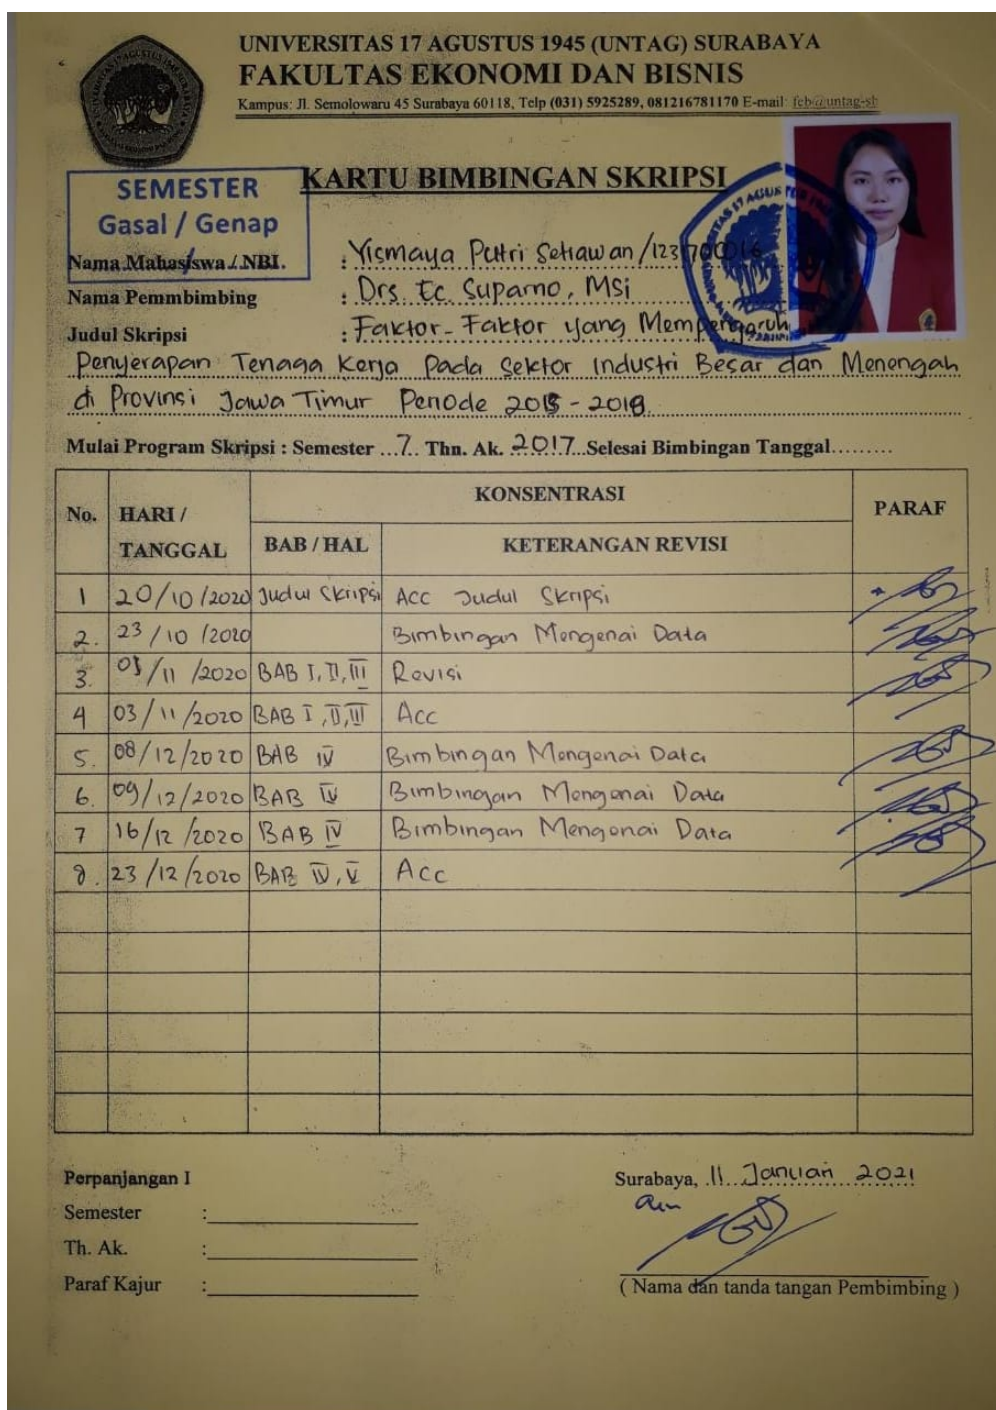 UNIVERSITAS 17 AGUSTUS 1945 (UNTAG) SURABAYA
FAKULTAS EKONOMI DAN BISNIS
Kampus: Jl. Semolowaru 45 Surabaya 60118, Telp (031) 5925289, 081216781170 E-mail: feb@untag-sb
KARTU BIMBINGAN SKRIPSI
SEMESTER
Gasal / Genap
Nama Mahasiswa / NBI. : Yismaya Putri Setiawan /
Nama Pemmbimbing : Drs. Ec. Suparno, MSi
Judul Skripsi : Faktor-Faktor yang Mempengaruhi
Penyerapan Tenaga Kerja Pada Sektor Industri Besar dan Menengah
di Provinsi Jawa Timur Periode
Mulai Program Skripsi : Semester ...7.. Thn. Ak. 2017 Selesai Bimbingan Tanggal.........
No. HARI / TANGGAL KONSENTRASI PARAF
BAB / HAL KETERANGAN REVISI
1 20/10/2020 Judul Skripsi Acc Judul Skripsi
2. 23/10/2020 Bimbingan Mengenai Data
3. /11/2020 BAB I, II, III Revisi
4 03/11/2020 BAB I, II, III Acc
5. 08/12/2020 BAB IV Bimbingan Mengenai Data
6. 09/12/2020 BAB IV Bimbingan Mengenai Data
7 16/12/2020 BAB IV Bimbingan Mengenai Data
8. 23/12/2020 BAB IV, V Acc
Perpanjangan I
Semester :
Th. Ak. :
Paraf Kajur :
Surabaya, 11 Januari 2021
( Nama dan tanda tangan Pembimbing )